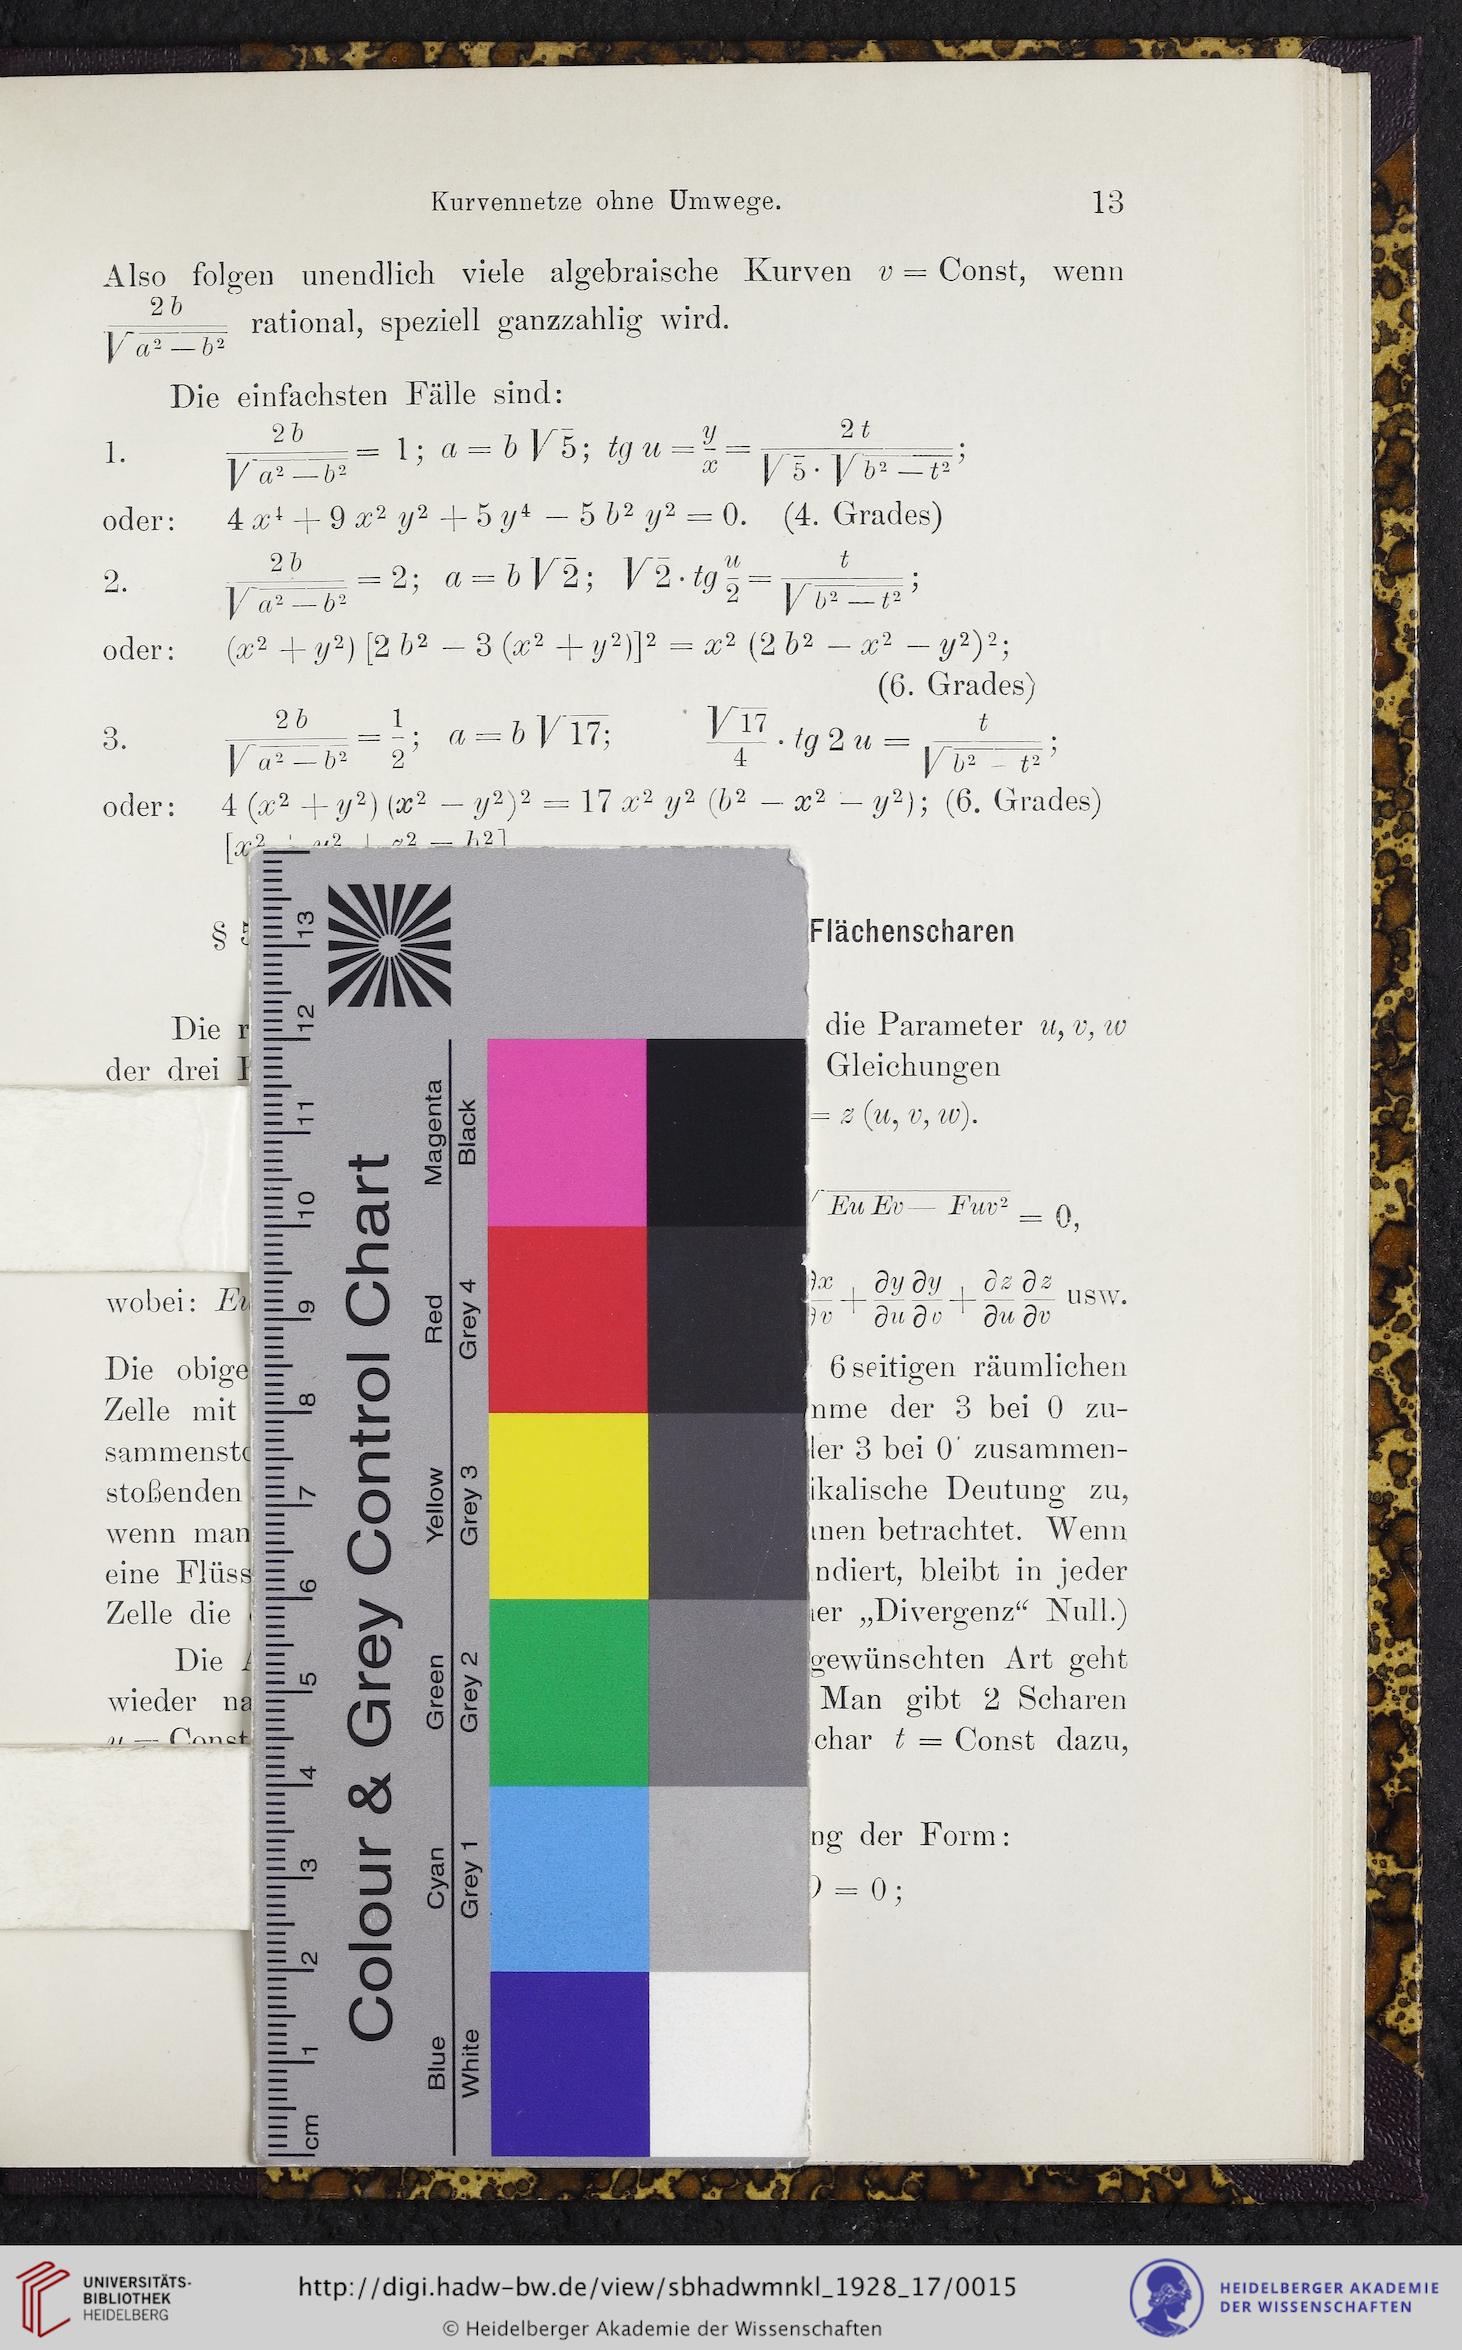 Kurvennetze ohne Umwege. 13
Also folgen unendlich viele algebraische Kurven v = Const, wenn
2b / √(a² — b²) rational, speziell ganzzahlig wird.
Die einfachsten Fälle sind:
1. 2b / √(a² — b²) = 1; a = b √5; tg u = y/x = 2t / (√5 · √(b² — t²));
oder: 4 x⁴ + 9 x² y² + 5 y⁴ — 5 b² y² = 0. (4. Grades)
2. 2b / √(a² — b²) = 2; a = b √2; √2 · tg u/2 = t / √(b² — t²);
oder: (x² + y²) [2 b² — 3 (x² + y²)]² = x² (2 b² — x² — y²)²;
(6. Grades)
3. 2b / √(a² — b²) = 1/2; a = b √17; √17/4 · tg 2 u = t / √(b² — t²);
oder: 4 (x² + y²) (x² — y²)² = 17 x² y² (b² — x² — y²); (6. Grades)
[x² + y² + z² — b²]
§ Flächenscharen
Die die Parameter u, v, w
der drei Gleichungen
= z (u, v, w).
√(Eu Ev — Fuv²) = 0,
wobei: ∂x/∂v + ∂y/∂u ∂y/∂v + ∂z/∂u ∂z/∂v usw.
Die obige 6 seitigen räumlichen
Zelle mit mme der 3 bei 0 zu-
sammensto der 3 bei 0' zusammen-
stoßenden ikalische Deutung zu,
wenn man nen betrachtet. Wenn
eine Flüss ndiert, bleibt in jeder
Zelle die er „Divergenz“ Null.)
Die gewünschten Art geht
wieder na Man gibt 2 Scharen
u = Const char t = Const dazu,
ng der Form:
= 0;
Colour & Grey Control Chart
Magenta Red Yellow Green Cyan Blue
Black Grey 4 Grey 3 Grey 2 Grey 1 White
13 12 11 10 9 8 7 6 5 4 3 2 1 cm
UNIVERSITÄTS-
BIBLIOTHEK
HEIDELBERG
http://digi.hadw-bw.de/view/sbhadwmnkl_1928_17/0015
© Heidelberger Akademie der Wissenschaften
HEIDELBERGER AKADEMIE
DER WISSENSCHAFTEN